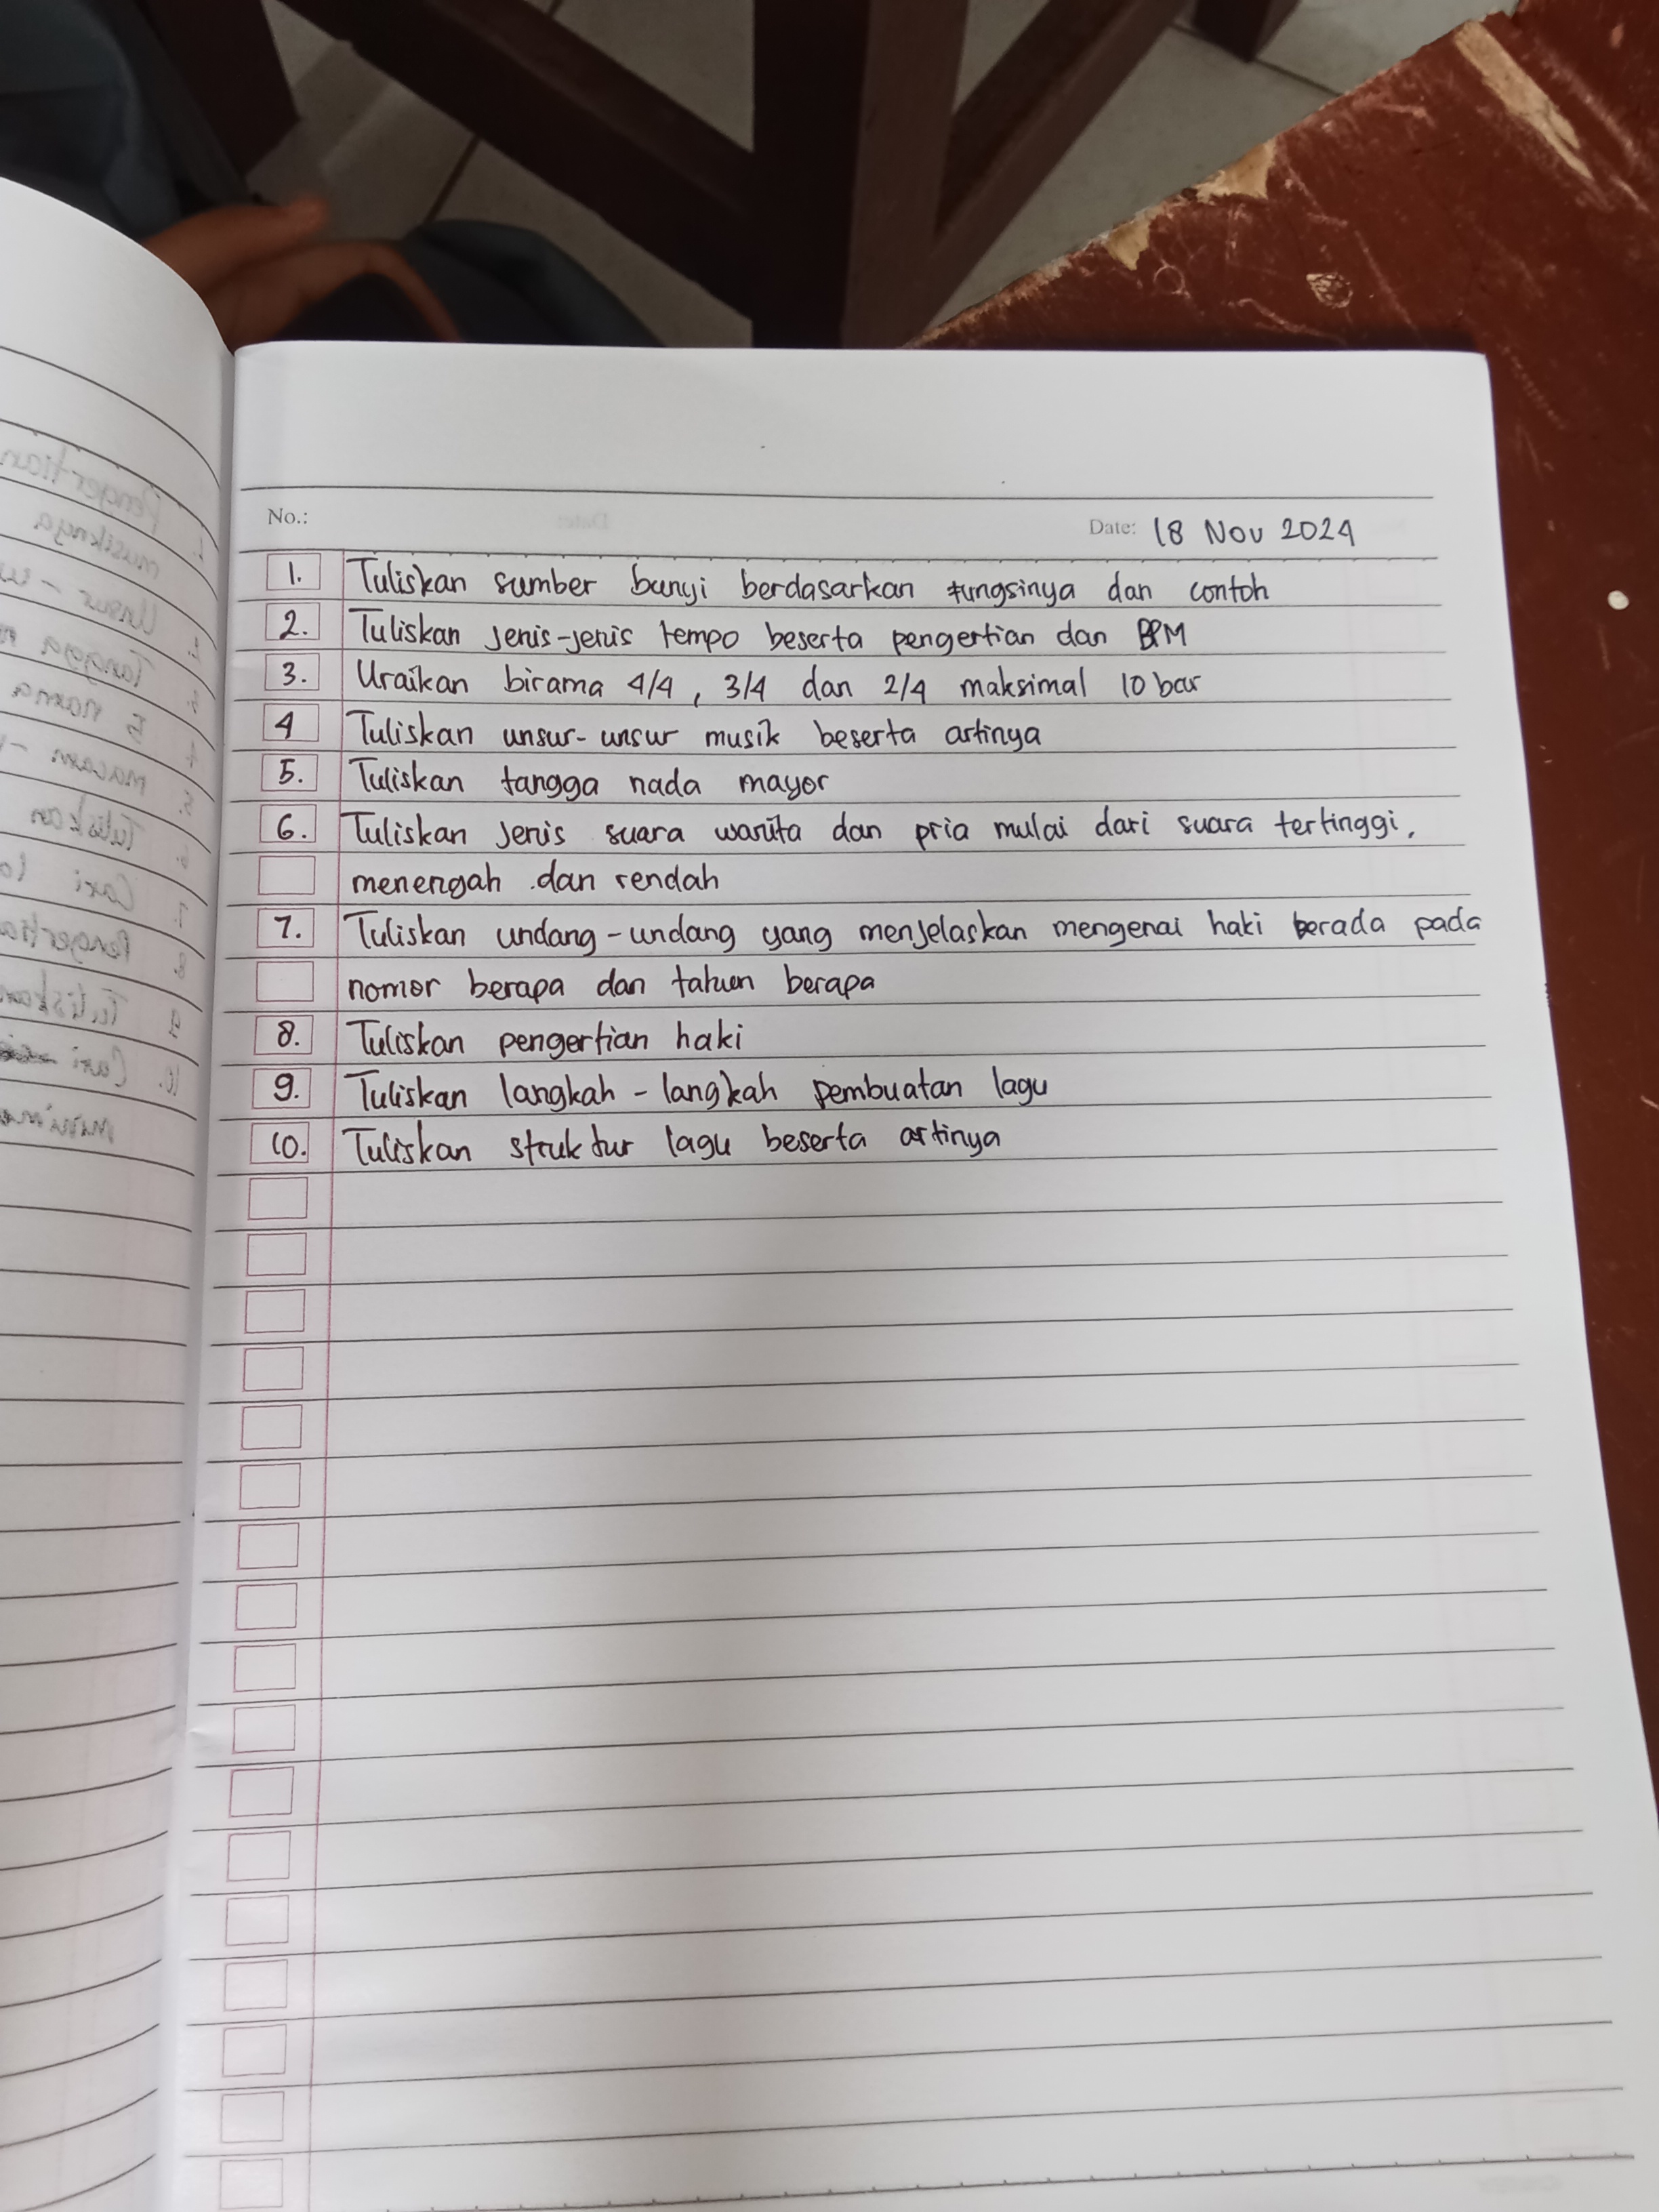 No.:
Date: 18 Nov 2024
1. Tuliskan sumber bunyi berdasarkan fungsinya dan contoh
2. Tuliskan jenis-jenis tempo beserta pengertian dan BPM
3. Uraikan birama 4/4, 3/4 dan 2/4 maksimal 10 bar
4 Tuliskan unsur-unsur musik beserta artinya
5. Tuliskan tangga nada mayor
6. Tuliskan jenis suara wanita dan pria mulai dari suara tertinggi,
menengah dan rendah
7. Tuliskan undang-undang yang menjelaskan mengenai haki berada pada
nomor berapa dan tahun berapa
8. Tuliskan pengertian haki
9. Tuliskan langkah-langkah pembuatan lagu
10. Tuliskan struktur lagu beserta artinya